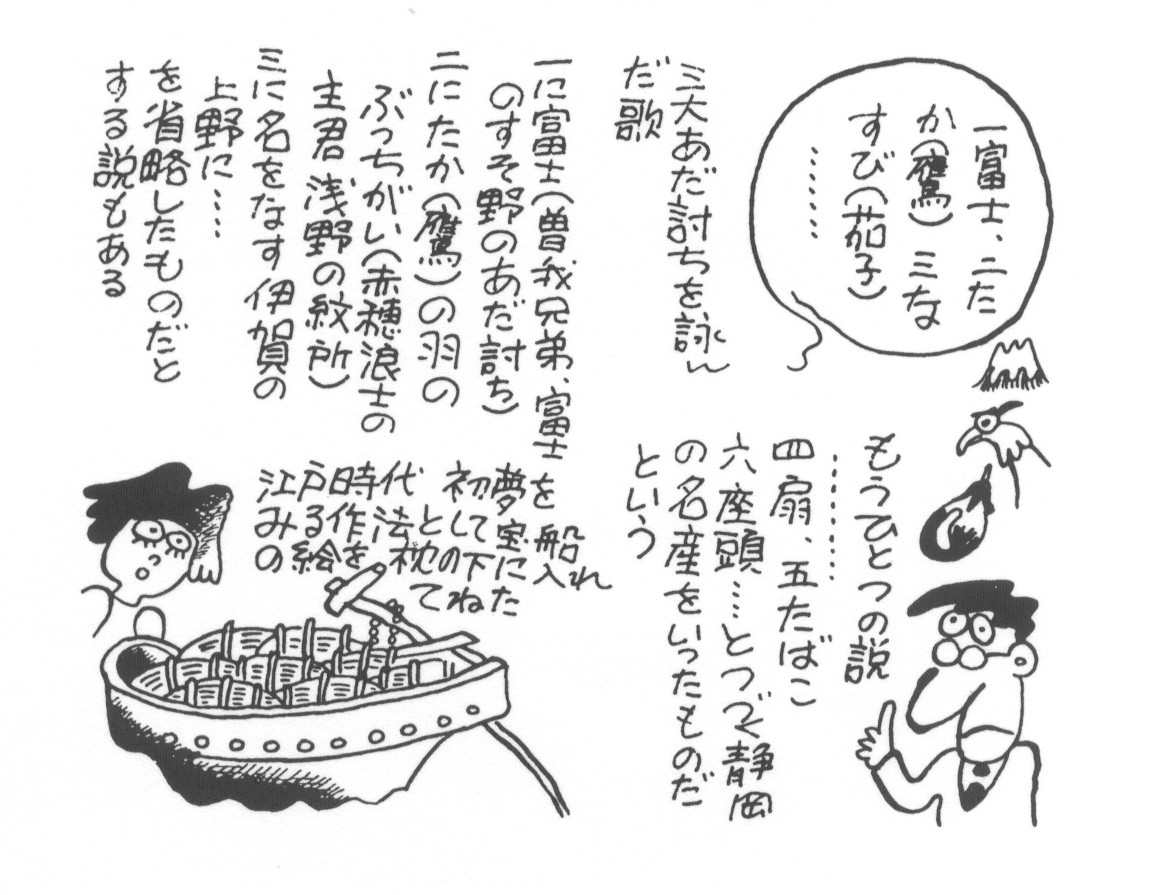 一富士、二た
か(鷹) 三な
すび(茄子)
………
三大あだ討ちを詠ん
だ歌
一に富士(曽我兄弟、富士
のすそ野のあだ討ち)
二にたか(鷹)の羽の
ぶっちがい(赤穂浪士の
主君 浅野の紋所)
三に名をなす伊賀の
上野に……
を省略したものだと
する説もある
もうひとつの説
………
四扇、五たばこ
六座頭……とつづく静岡
の名産をいったものだ
という
江戸時代初夢を
みる作法として宝船
の絵を枕の下に入れ
てねた